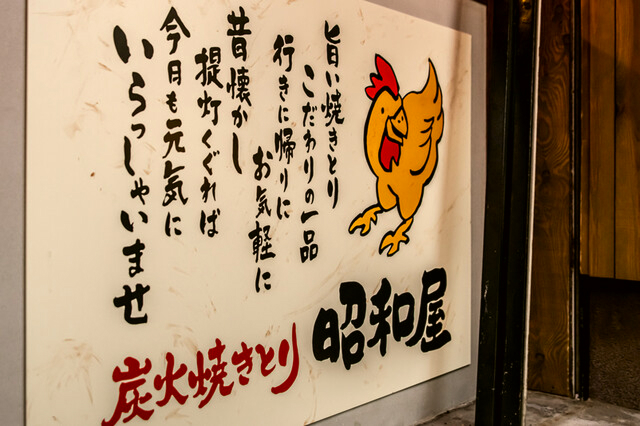 旨い焼きとり
こだわりの一品
行きに帰りに
お気軽に
昔懐かし
提灯くぐれば
今日も元気に
いらっしゃいませ
炭火焼きとり
昭和屋